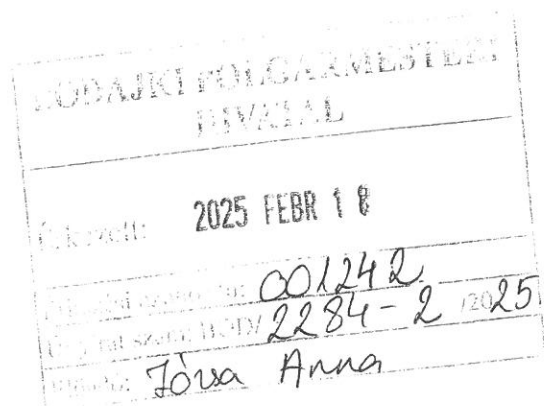 BODAJKI POLGÁRMESTERI
HIVATAL
Érkezett: 2025 FEBR 18
001242
Ügyirat szám: BOD/2284-2/2025
Józsa Anna